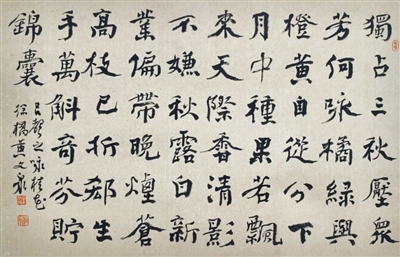 獨占三秋壓衆
芳何咏橘綠與
橙黄自從分下
月中種果若飄
來天際香清影
不嫌秋露白新
叢偏帶晚煙蒼
高枝已折郄生
手萬斛奇芬貯
錦囊
吕聲之咏桂花